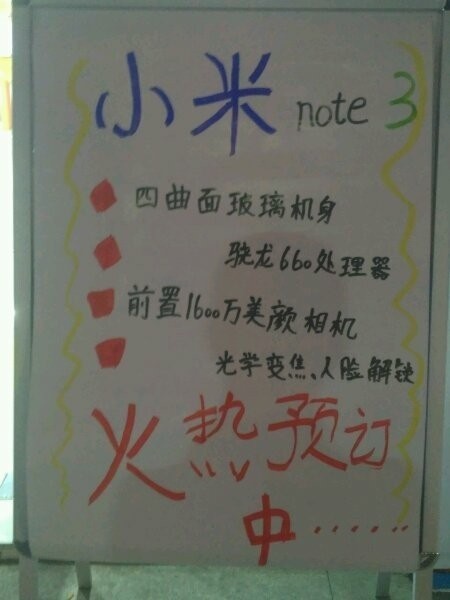 小米 note 3
四曲面玻璃机身
骁龙660处理器
前置1600万美颜相机
光学变焦、人脸解锁
火热预订
中······